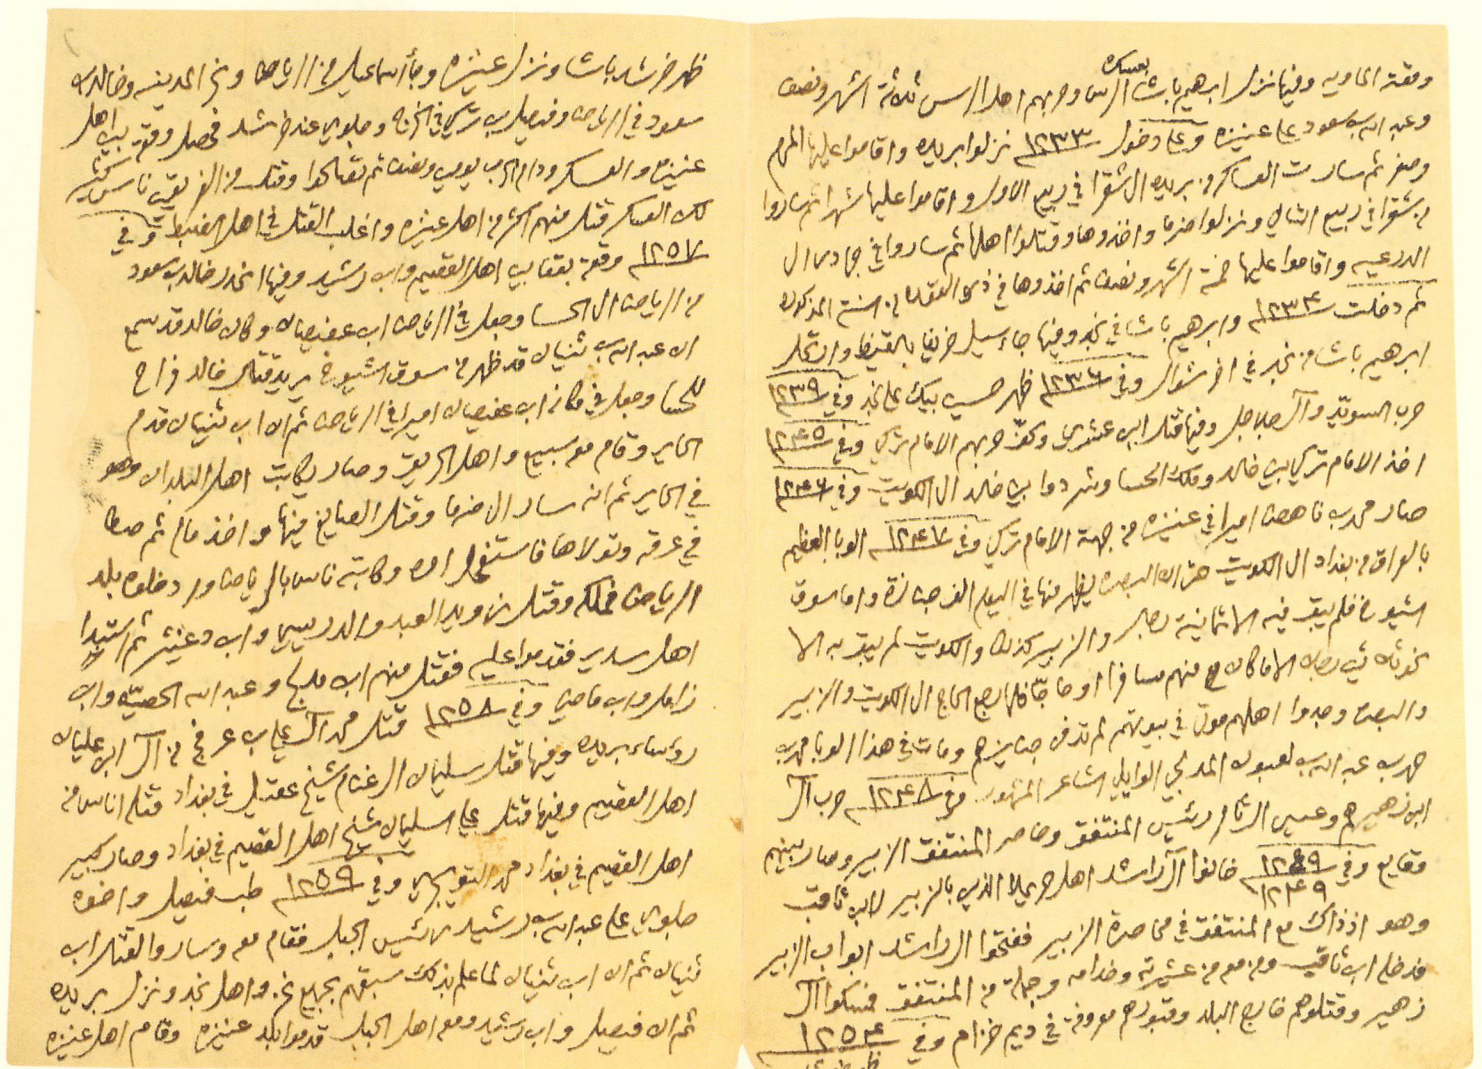 وقعة الماويه وفيها نزل ابراهيم باشا بعسكره الرس وحربهم اهل الرس ثلاثة اشهر ونصف
وعبد الله بن سعود على عنيزه وعلى دخول ١٢٣٣ نزلوا بريده واقاموا عليها المحرم
وصفر ثم سارت العساكر من بريده الى شقرا في ربيع الاول واقاموا عليها شهرا ثم ساروا
من شقرا في ربيع الثاني ونزلوا ضرما واخذوها وقتلوا اهلها ثم ساروا في جمادى الى
الدرعيه واقاموا عليها خمسة اشهر ونصف ثم اخذوها في ذي القعده من السنة المذكوره
ثم دخلت ١٢٣٤ وابراهيم باشا في نجد وفيها جاء سيل خريفا بالقيظ وارتحل
ابراهيم باشا من نجد في اخر شوال وفي ١٢٣٦ ظهر حسين بيك على نجد وفي ١٢٣٩
حرب السويد وآل جلاجل وفيها قتل ابن عشري وكف حربهم الامام تركي وفي ١٢٤٥
اخذ الامام تركي بني خالد وملك الحسا وشردوا بني خالد الى الكويت وفي ١٢٤٦
صار محمد بن ناهض اميرا في عنيزه من جهة الامام تركي وفي ١٢٤٧ الوبا العظيم
بالعراق من بغداد الى الكويت حتى ان البصره يظهر منها في اليوم الف جنازة واما سوق
الشيوخ فلم يبق فيه الا ثمانية رجال والزبير كذلك والكويت لم يبق به الا
نحو ثلاثين رجال الا ما كان منهم مسافرا او حاجا فلما رجع الحاج الى الكويت والزبير
والبصره وجدوا اهلهم موتى في بيوتهم لم تدفن جنايزهم ومات في هذا الوبا محمد بن
حمد بن عبد الله بن لعبون المدلجي الوايلي الشاعر المشهور وفي ١٢٤٨ حرب آل
ابن زهير هم وعيسى الثامر رئيس المنتفق وحاصر المنتفق الزبير وصار بينهم
وقايع وفي ١٢٤٩ خالفوا آل راشد اهل حريملا الذي بالزبير لابن ثاقب
١٢٤٩
وهو اذ ذاك مع المنتفق في محاصرة الزبير ففتحوا الراشد ابواب الزبير
فدخل ابن ثاقب ومن معه من عشيرته وخدامه وجملة من المنتفق فمسكوا آل
زهير وقتلوهم خارج البلد وقبورهم معروفة في ديم خزام وفي ١٢٥٤
ظهر خرشد باشا ونزل عنيزه وجاء اسماعيل من الرياض ونحر المدينه وخالد بن
سعود في الرياض وفيصل بن تركي في الخرج وجلوي عند خرشد فحصل وقعة بين اهل
عنيزه والعسكر ودام الحرب يومين ونصف ثم تصالحوا وقتل من الفريقين ناس كثير
لكن العسكر قتل منهم اكثر من اهل عنيزه واغلب القتل في اهل الضبط وفي
١٢٥٧ وقعة بقعا بين اهل القصيم وابن رشيد وفيها انحدر خالد بن سعود
من الرياض الى الحسا وجعل في الرياض ابن عفيصان وكان خالد قد سمع
ان عبد الله بن ثنيان قد ظهر من سوق الشيوخ يريد قتال خالد فراح
للحسا وجعل في مكانه ابن عفيصان اميرا في الرياض ثم ان ابن ثنيان قدم
الحاير وقام معه سبيع واهل الحريق وصار يكاتب اهل البلدان وهو
في الحاير ثم انه سار الى ضرما وقتل الصايغ فيها واخذ ماله ثم حط
في عرقه وتولاها فاستفحل امره وكاتبه ناس بالرياض وادخلوه بلد
الرياض فملكه وقتل زويد العبد والدريبي وابن دغيثر ثم استبدا
اهل سدير فقدموا عليه فقتل منهم ابن مدلج وعبد الله الحصيني وابن
زامل وابن ماضي وفي ١٢٥٨ قتل محمد آل علي بن عرفج من آل ابن عليان
رؤساء بريده وفيها قتل سليمان الغنام شيخ عقيل في بغداد قتله اناس من
اهل القصيم وفيها قتل علي السليمان شيخ اهل القصيم في بغداد وصار كبير
اهل القصيم في بغداد محمد التويجري وفي ١٢٥٩ طب فيصل واخوه
جلوي على عبد الله بن رشيد رئيس الجبل فقام معه وساروا لقتال ابن
ثنيان ثم ان ابن ثنيان لما علم بذلك سبقهم بجميع غزو اهل نجد ونزل بريده
ثم ان فيصل وابن رشيد ومعه اهل الجبل قدموا بلد عنيزه وقام اهل عنيزه